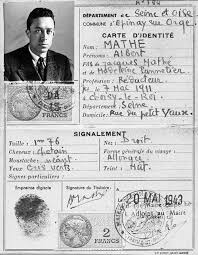 DÉPARTEMENT d e Seine et Oise
COMMUNE d' Epinay sur Orge
CARTE D'IDENTITÉ
Nom : MATHÉ
Prénoms : Albert
Fils de Jacques Mathé
et de Madeleine
Profession : Rédacteur
Né le 7 Mai 1911
à Choisy-le-Roi
Département : Seine
Domicile : Rue du petit Vaux
15
FRANCS
SIGNALEMENT
Taille : 1m 76
Cheveux : châtain
Moustache :
Yeux : gris verts
Signes particuliers :
Nez : Droit
Forme générale du visage :
Allongée
Teint : Mat
Empreinte digitale
Signature du Titulaire,
20 MAI 1943
Adjoint au Maire
2
FRANCS